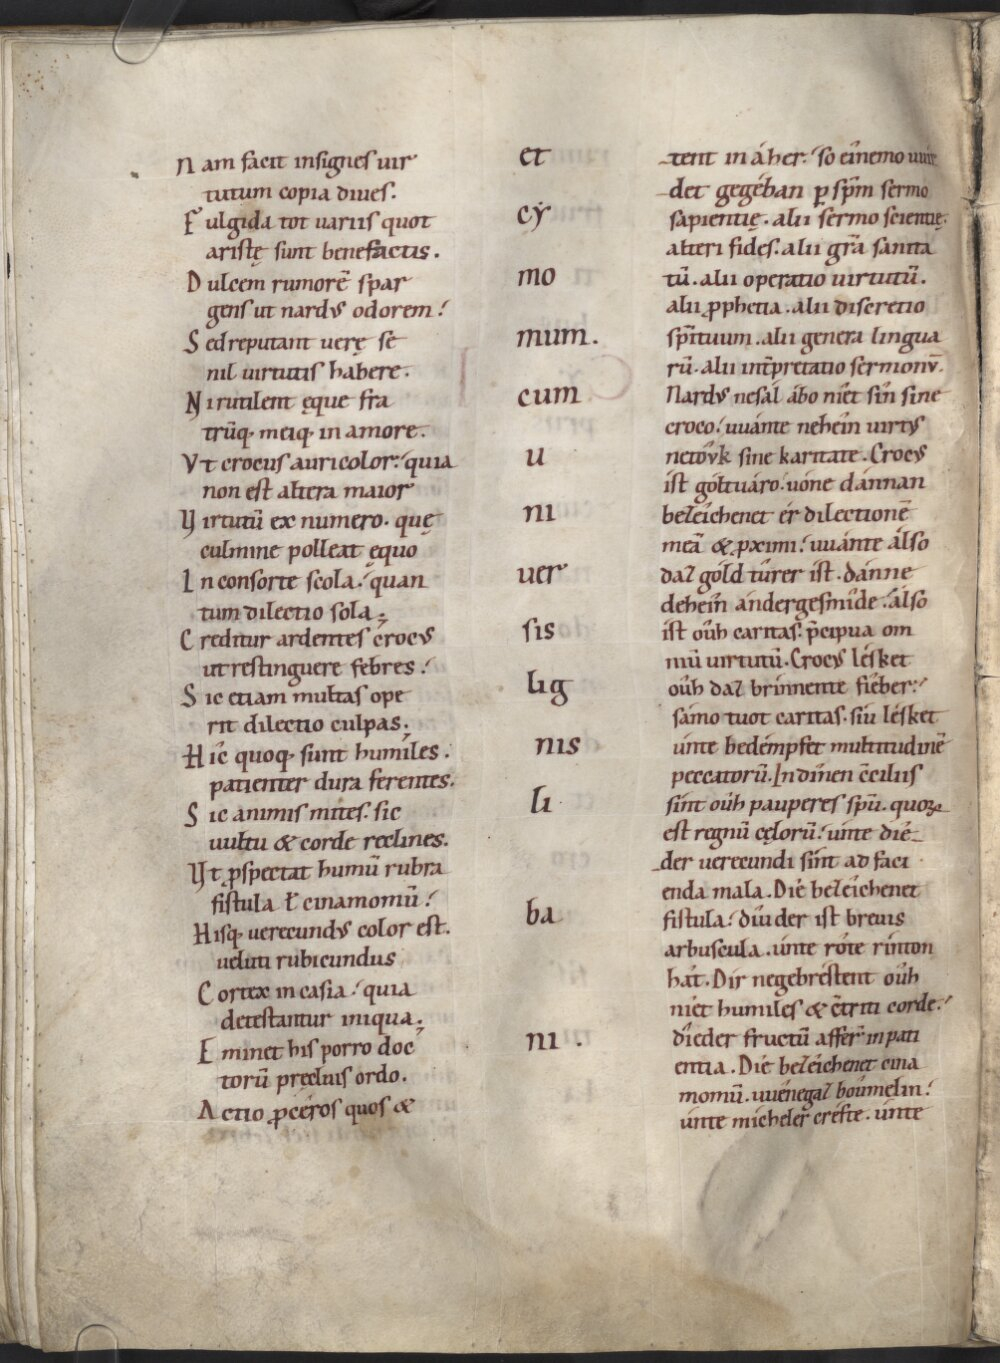 Nam facit insignes uir
tutum copia diues.
Fulgida tot uariis quot
aristę sunt benefactis.
Dulcem rumorē spar
gens ut nardus odorem:́
Sed reputant uerę se
nil uirtutis habere.
Ni rutilent ęque fra
trūq; meiq; in amore.
Vt crocus auricolor:́ quia
non est altera maior
Virtutū ex numero. quę
culmine polleat ęquo
In consorte scola:́ quan
tum dilectio sola;
Creditur ardentes crocus
ut restinguere febres:́
Sic etiam multas ope
rit dilectio culpas;
Hic quoq; sunt humiles.
patienter dura ferentes.
Sic animis mites. sic
uultu & corde reclines.
Vt ꝓspectat humū rubra
fistula ł cinamomū:́
Hisq; uerecundus color est.
ueluti rubicundus
Cortex in casia:́ quia
detestantur iniqua;
Eminet his porro doc
torū pręcluis ordo.
Actio ꝓceros quos &
et
cẏ
mo
mum.
cum
u
ni
uer
sis
lig
nis
li
ba
ni.
tent in áher:́ so eînemo
det gegéban ꝑ spm̄ sermo
sapientię. alii sermo scientię.
alteri fides. alii gr̄a sanita
tū. alii operatio uirtutū.
alii ꝓphetia. alii discretio
spirituum. alii genera lingua
rū. alii int̄pretatio sermonū.
Nardus nesál ábo niêt sîn sine
croco:́ uuánte nehêin uirtus
netôuk sine karitate. Crocus
ist góltuáro:́ uóne dánnan
bezêichenet ér dilectionē
meā & ꝓximi:́ uuánte álso
daz góld tûrer ist. dánne
dehêin ándergesmîde:́ álsô
ist oûh caritas. p̄cipua om
niū uirtutū. Crocus lésket
oûh daz brinnente fîeber:́
sámo tuot caritas. siu lésket
únte bedémpfet multitudinē
peccatorū. In dînen c̄ciliis
sint oûh pauperes spū. quoꝝ
est regnū cęlorū:́ únte dîe
der uerecundi sînt ad faci
enda mala. Dîe bezêichenet
fistula:́ dîu der ist breuis
arbuscula. únte rôte rînton
hât. Dir negebréstent oûh
niêt humiles & c̄triti corde:́
dîeder fructū affer̄ in pati
entia. Dîe bezêichenet cina
momū. uuénegaz boûmelin:́
únte micheler créfte. únte